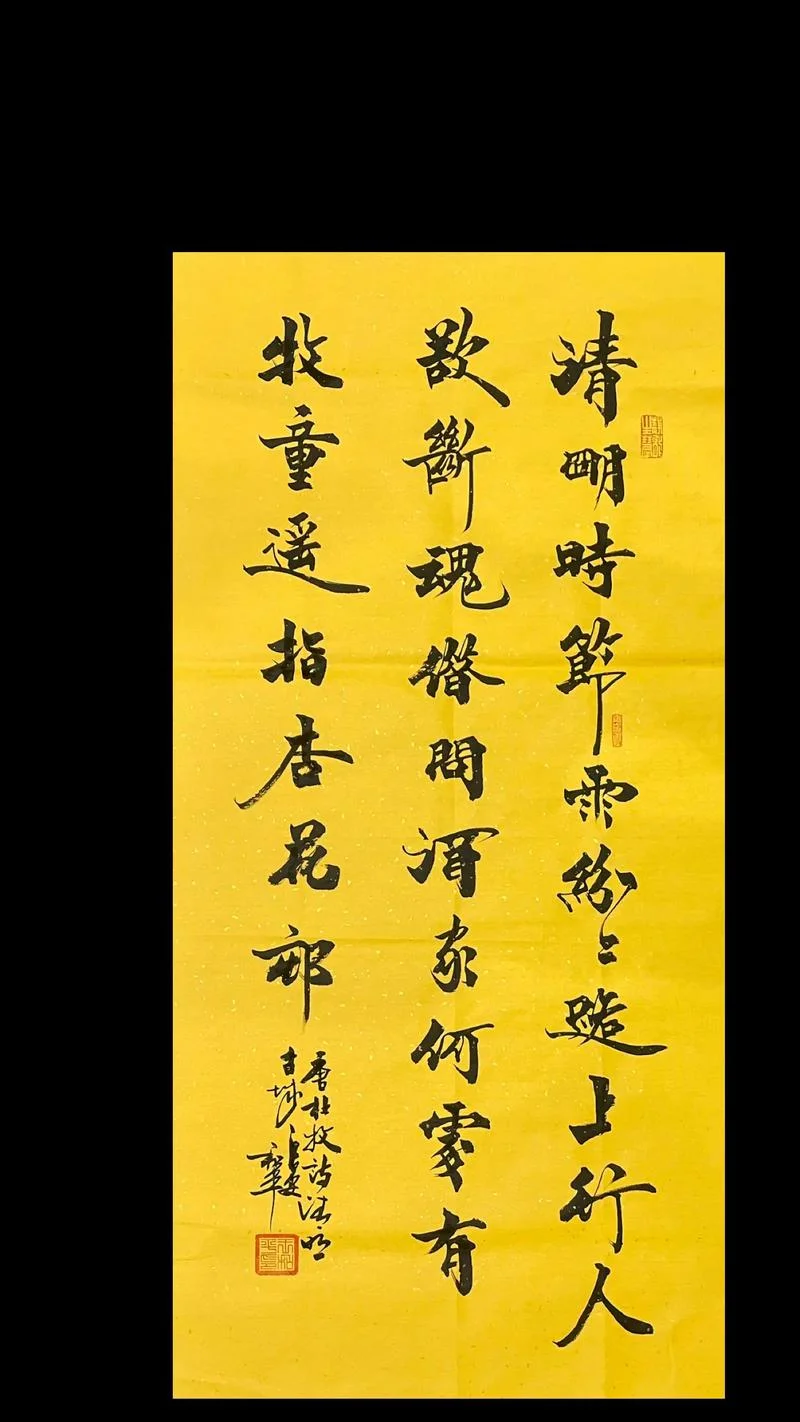 清明時節雨紛〻路上行人
欲斷魂借問酒家何處有
牧童遥指杏花邨
唐杜牧詩清明
古城